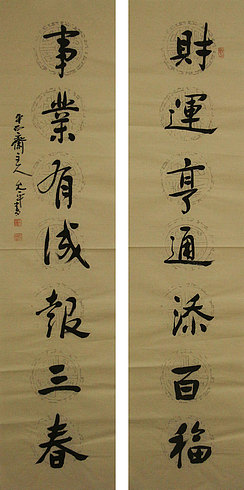 財運亨通添百福
事業有成報三春
齋主人